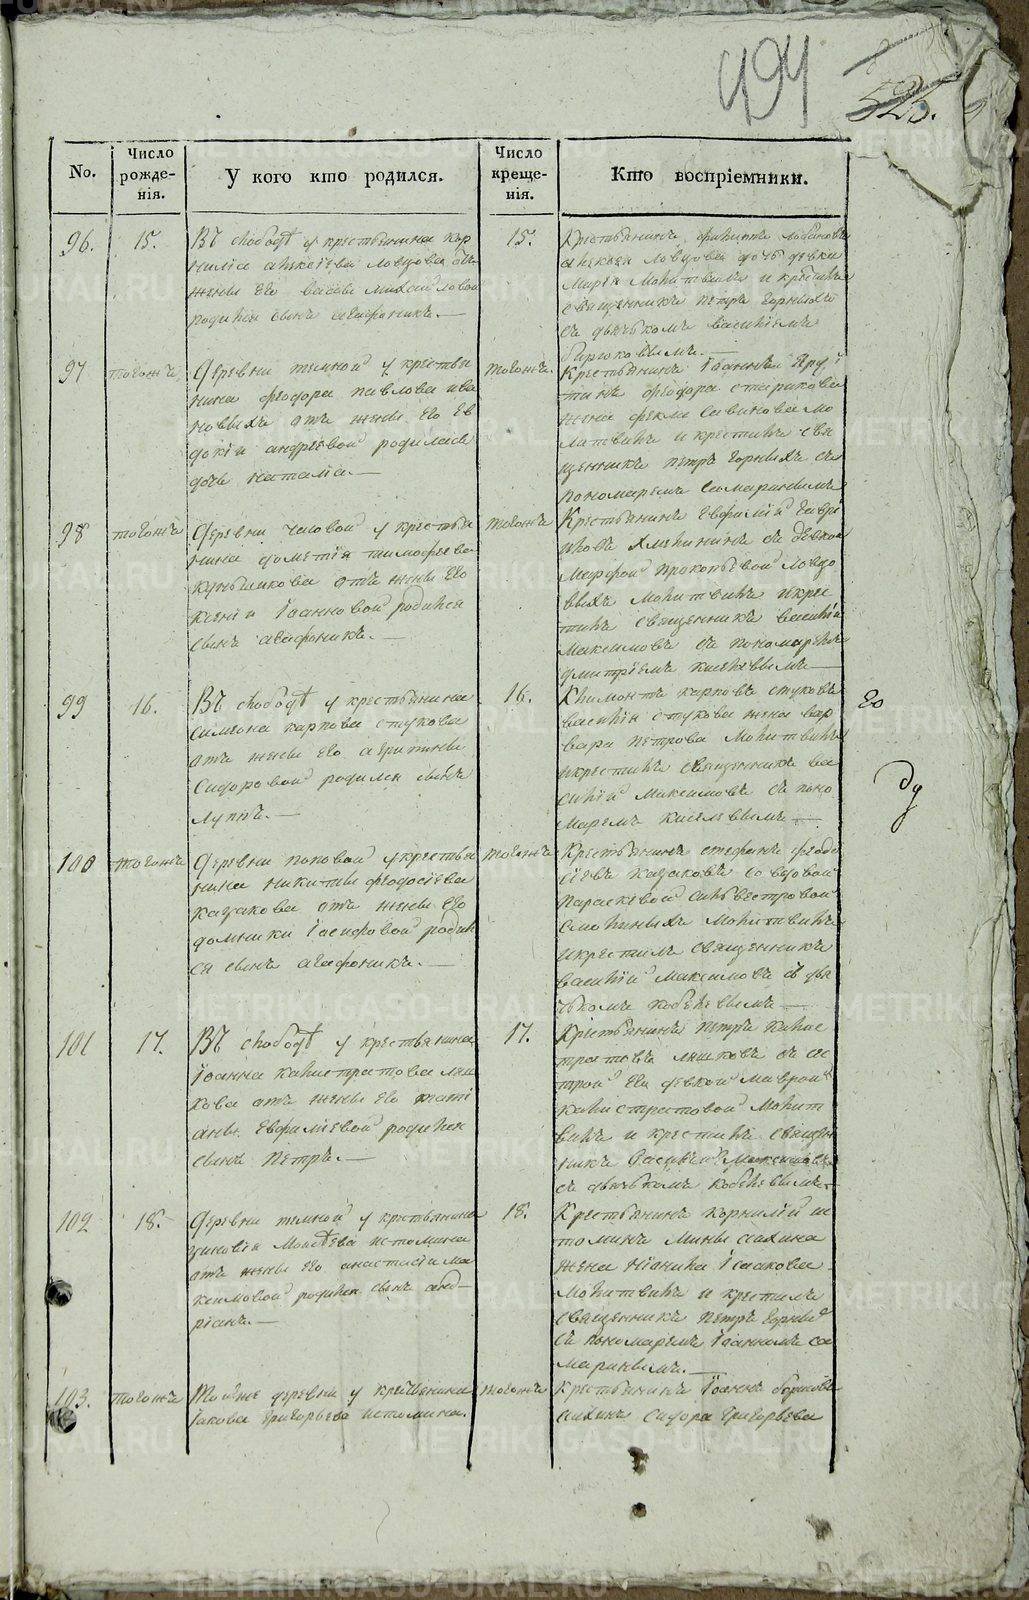 494
525.
No.
Число рожде-нія.
У кого кто родился.
Число креще-нія.
Кто воспріемники.
96.
15.
Въ слободѣ у крестьянина Кор
нилія Алексіева Ловцова отъ
жены его Михайловой
родился сынъ Агафоникъ. —
15.
Крестьянинъ
Алексея Ловцова дочь девка
Марья молитвилъ и крестилъ
священникъ Петръ Горныхъ
съ дьячкомъ Василіемъ
Бирюковымъ. —
97
тогожъ
Деревни темной у крестья
нина Феодора Павлова ива
новыхъ отъ жены его Ев
докіи Андреевой родилась
дочь Наталіа. —
тогожъ.
Крестьянинъ Іоаннъ
Феодора Старикова
жена Фекла Савинова мо
литвилъ и крестилъ свя
щенникъ Петръ Горныхъ съ
пономаремъ Самаринымъ
98
тогожъ
Деревни часовой у крестья
нина Дометія Тимофеева
отъ жены его
Ксеніи Іоанновой родился
сынъ Агафоникъ. —
тогожъ
Крестьянинъ Евфимій Гаврі
ловъ Хмелининъ съ девкой
Марфой Прокопьевой Ловцо
выхъ молитвилъ и крес
тилъ священникъ Василій
Максимовъ съ пономаремъ
Дмитріемъ Киселевымъ —
99
16.
Въ слободѣ у крестьянина
Симеона Карпова Стукова
отъ жены его Агрипины
Сидоровой родился сынъ
Луппъ. —
16.
Климонтъ Карповъ Стуковъ
Василія Стукова жена Вар
вара Петрова молитвилъ
и крестилъ священникъ Ва
силій Максимовъ съ поно
маремъ Киселевымъ —
Ео
ду
100
тогожъ
Деревни поповой у крестья
нина Никиты Феодосіева
Казакова отъ жены его
Домники Іосифовой родил
ся сынъ Агафоникъ. —
тогожъ
Крестьянинъ Стефанъ Феодо
сіевъ Казаковъ со вдовой
Параскевой Сильвестровой
молитвилъ
и крестилъ священникъ
Василій Максимовъ съ дья
чкомъ Кобелевымъ —
101
17.
Въ слободѣ у крестьянина
Іоанна Калистратова Лыш
кова отъ жены его Тати
аны Евфиміевой родился
сынъ Петръ. —
17.
Крестьянинъ Петръ Калис
тратовъ Лышковъ съ сес
трой его девкой Маврой
Калистратовой молит
вилъ и крестилъ священ
никъ Василій Максимовъ
съ дьячкомъ Кобелевымъ. —
102
18.
Деревни темной у крестьянина
Зиновія Моисѣева Истомина
отъ жены его Анастасіи Ма
ксимовой родился сынъ Анд-
ріанъ. —
18.
Крестьянинъ Корнилій Ис
томинъ Мины
жена Неонила Ісаакова
молитвилъ и крестилъ
священникъ Петръ Горныхъ
съ пономаремъ Іоанномъ Са
маринымъ. —
103.
тогожъ
Той же деревни у крестьянина
Іакова Григорьева Истомина.
тогожъ
Крестьянинъ Іоаннъ
Сидора Григорьева
METRIKI.GASO-URAL.RU